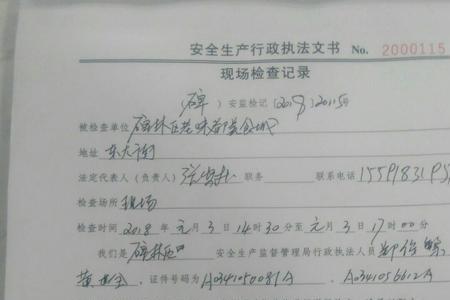 安全生产行政执法文书 No. 2000115
现场检查记录
（碑）安监检记〔2018〕20115号
被检查单位 碑林区老味都美食城
地址 东大街
法定代表人（负责人） 张 职务 联系电话 155918319
检查场所 现场
检查时间 2018 年 元 月 3 日 14 时 30 分至 元 月 3 日 17 时 00 分
我们是 碑林区 安全生产监督管理局行政执法人员
黄 ，证件号码为 A034150081A 、 A034105612A